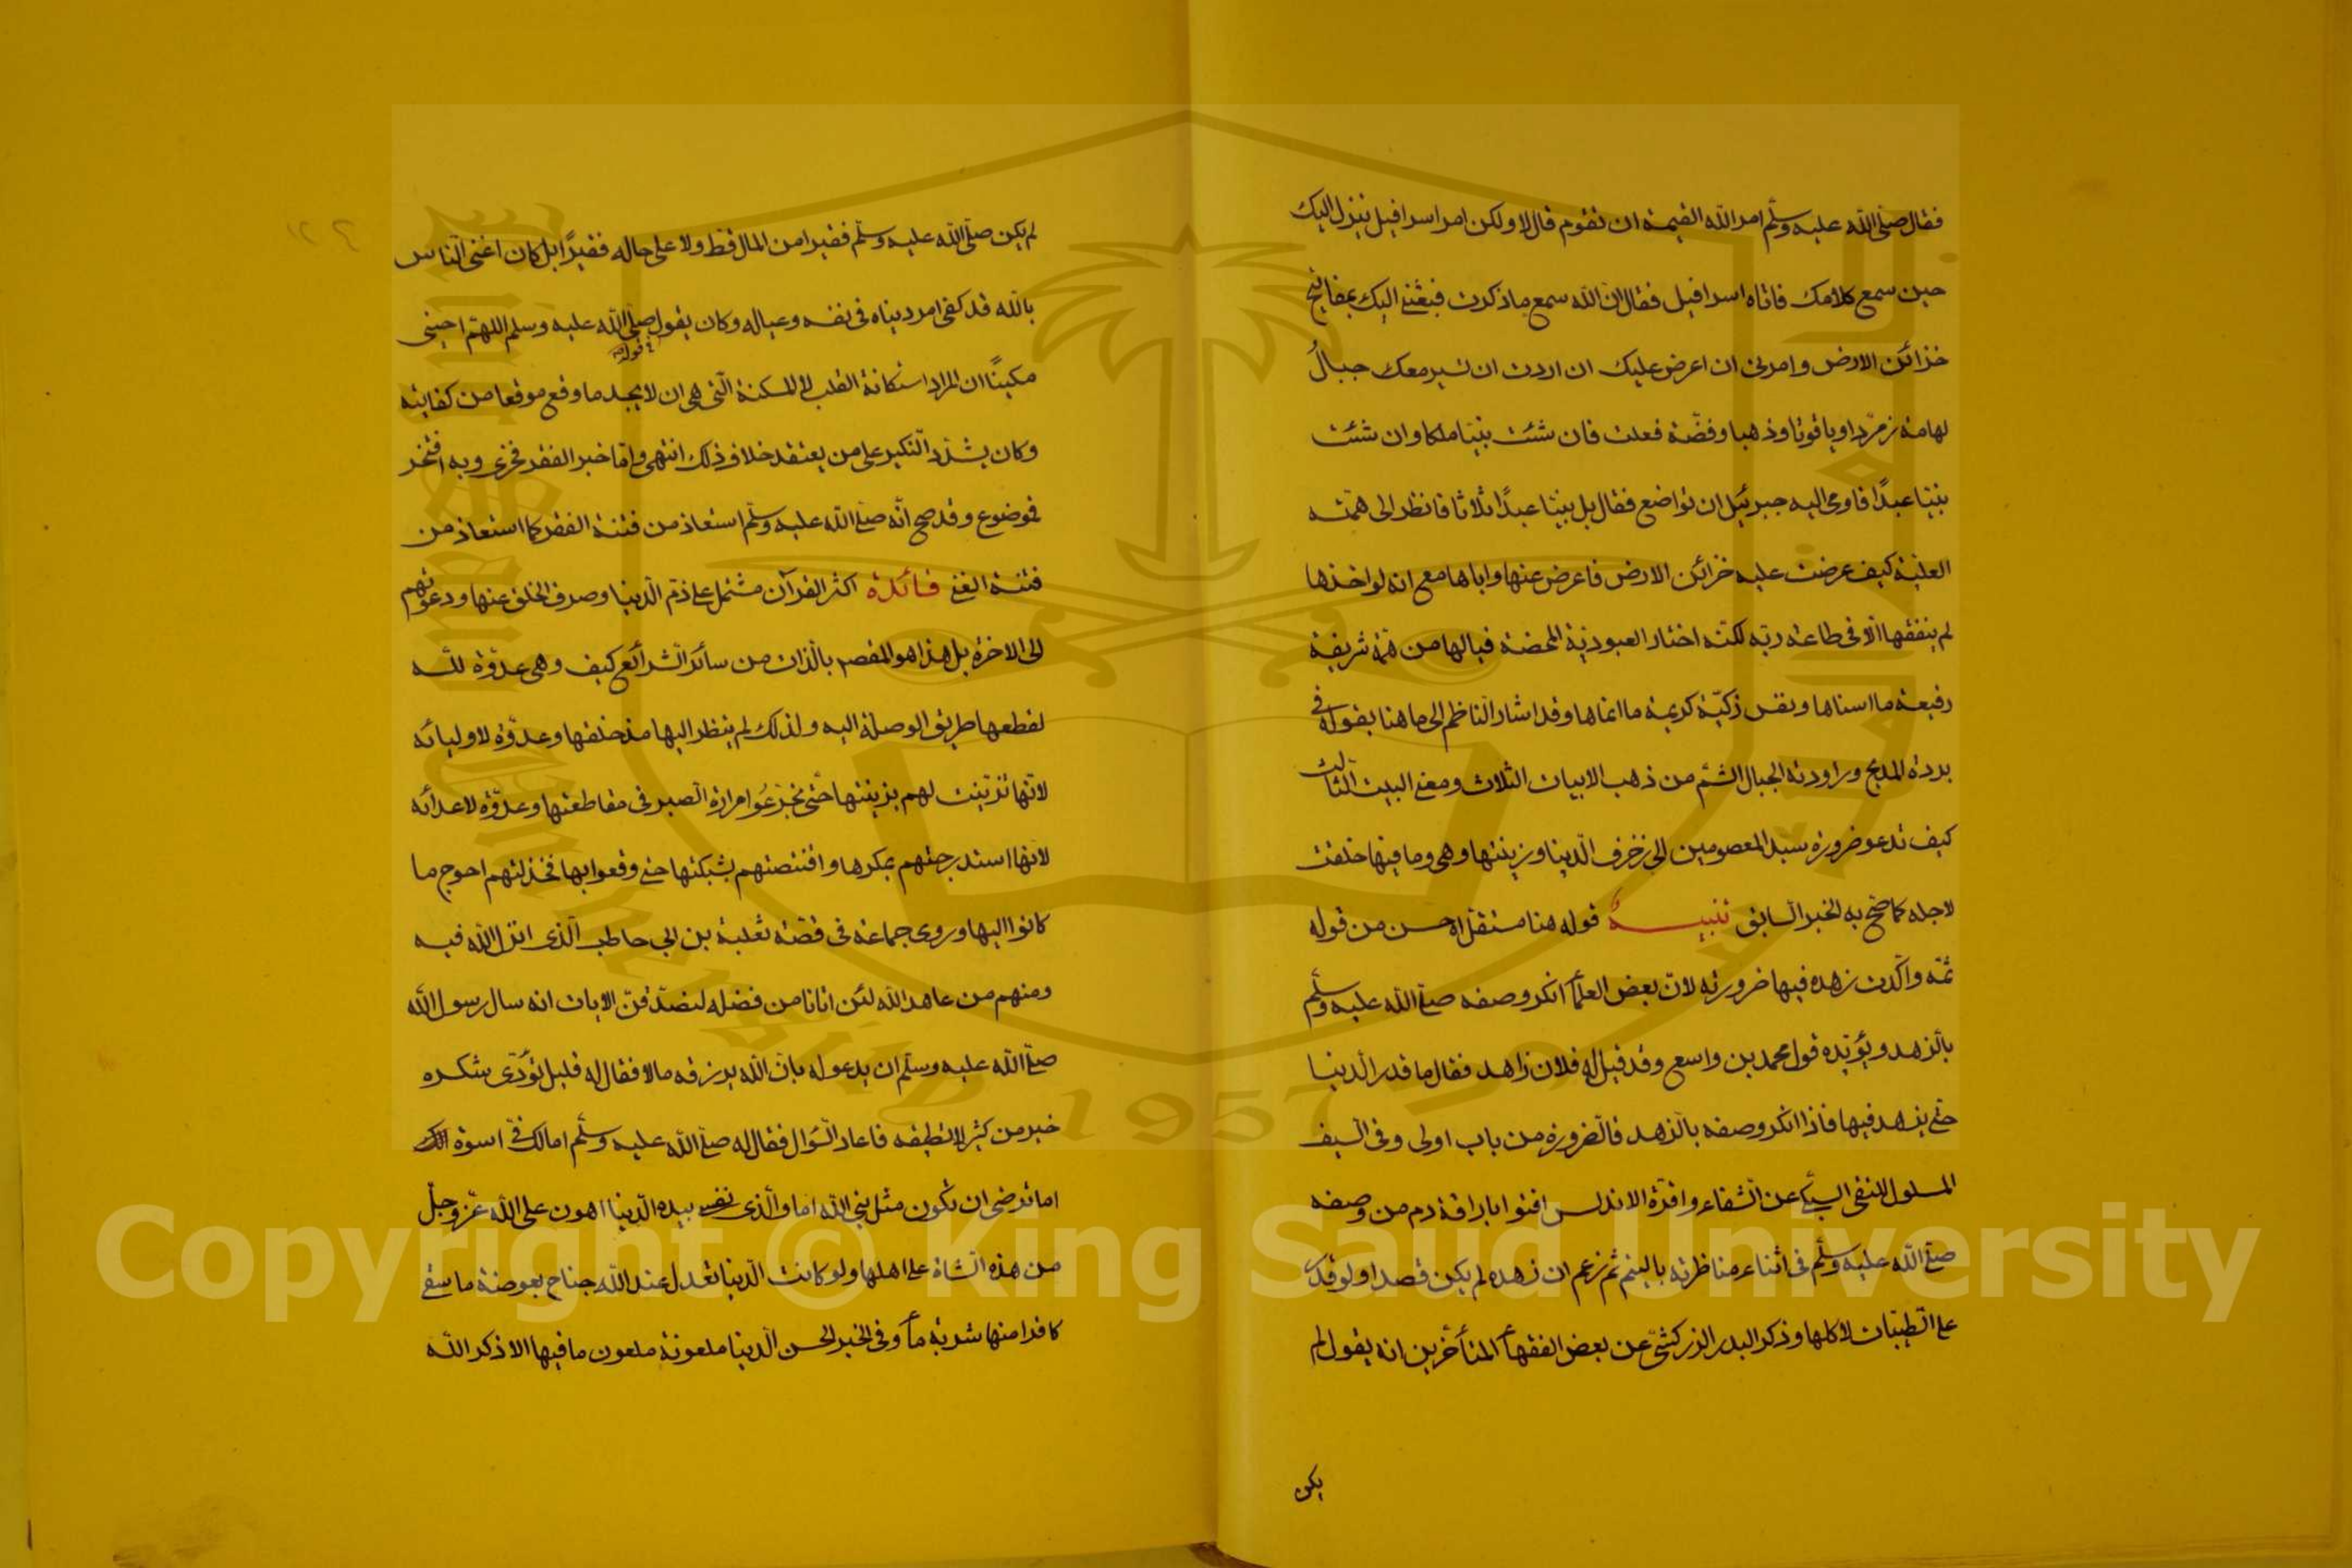 فقال صلى الله عليه وسلم امر الله القيمة ان تقوم قال لا ولكن امر اسرافيل ينزل اليك
حين سمع كلامك فاتاه اسرافيل فقال ان الله سمع ما ذكرت فبعثني اليك بمفاتيح
خزائن الارض وامرني ان اعرض عليك ان اردت ان تسير معك جبالُ
تهامة زمرّدا وياقوتا وذهبا وفضّة فعلت فان شئت نبيّا ملكا وان شئت
نبيّا عبدًا فاومى اليه جبرئيل ان تواضع فقال بل نبيّا عبدًا ثلاثا فانظر الى همّته
العليّة كيف عرضت عليه خزائن الارض فاعرض عنها واباها مع انه لو اخذها
لم ينفقها الّا فى طاعة ربّه لكنّه اختار العبوديّة المحضة فيالها من همّة شريفة
رفيعة ما اسناها ونفس زكيّة كريمة ما انماها وقد اشار النّاظم الى ما هنا بقوله فى
بردة المديح وراودته الجبال الشّم من ذهب الابيات الثلاث ومعنى البيت الثّالث
كيف تدعو ضرورة سيد المعصومين الى زخرف الّدنيا وزينتها وهى وما فيها خلقت
لاجله كما صحّ به الخبر السّابق تنبيه قوله هنا مستقلّ احسن من قوله
ثمّه واكّدت زهده فيها ضرورته لانّ بعض العلمآ انكر وصفه صلّى الله عليه وسلّم
بالّزهد ويؤيّده قول محمد بن واسع وقد قيل له فلان زاهد فقال ما قدر الّدنيا
حتّى يزهد فيها فاذا انكر وصفه بالّزهد فالّضرورة من باب اولى وفى السّيف
المسلول للتقى السّبكي عن الّشفاء واقرّه ان فقهاء الاندلس افتوا باراقة دم من وصفه
صلّى الله عليه وسلّم فى اثناء مناظرته باليتيم ثم زعم ان زهده لم يكن قصدا ولو قدر
على الّطيبّات لاكلها وذكر البدر الزركشىّ عن بعض الفقهآ المتأخّرين انه يقول لم
يكن
لم يكن صلّى الله عليه وسلّم فقيرا من المال قط ولا على حاله فقيرًا بل كان اغنى النّاس
بالله قد كفى امر دنياه فى نفسه وعياله وكان يقول صلى الله عليه وسلم اللهمّ احينى
فى قوله
مسكينًا ان المراد استكانة القلب لا المسكنة الّتى هى ان لا يجد ما وقع موقعا من كفايته
وكان يشدّد الّنكير على من يعتقد خلاف ذلك انتهى وامّا خبر الفقر فخرى وبه افتخر
فموضوع وقد صح انّه صلّى الله عليه وسلّم استعاذ من فتنة الفقر كما استعاذ من
فتنة الغنى فائدة اكثر القرآن مشتمل على ذمّ الّدنيا وصرف الخلق عنها ودعوتهم
الى الاخرة بل هذا هو المقصد بالّذات من سائر الّشرائع كيف وهى عدوّة لله
لقطعها طريق الوصلة اليه ولذلك لم ينظر اليها منذ خلقها وعدوّة لاوليائه
لانّها تزيّنت لهم بزينتها حتّى تجرّعُوا مرارة الّصبر فى مقاطعتها وعدوّة لاعدائه
لانّها استدرجتهم بمكرها واقتنصتهم بشبكتها حتى وقعوا بها فخذلتهم احوج ما
كانوا اليها وروى جماعة فى قصّة ثعلبة بن ابي حاطب الّذى انزل الله فيه
ومنهم من عاهد الله لئن اتانا من فضله لنصدّقنّ الايات انه سال رسول الله
صلّى الله عليه وسلّم ان يدعو له بان الله يرزقه مالا فقال له قليل تؤدّى شكره
خير من كثير لا تطيقه فاعاد الّسؤال فقال له صلّى الله عليه وسلّم امالك فىّ اسوة
اما ترضى ان تكون مثل نبي الله اما والّذى نفسى بيده الّدنيا اهون على الله عزّ وجلّ
من هذه الّشاة على اهلها ولو كانت الّدنيا تعدل عند الله جناح بعوضة ما سقى
كافرا منها شربة مآ وفى الخبر الحسن الّدنيا ملعونة ملعون ما فيها الا ذكر الله
١٢٤
Copyright © King Saud University
King Saud University
1957